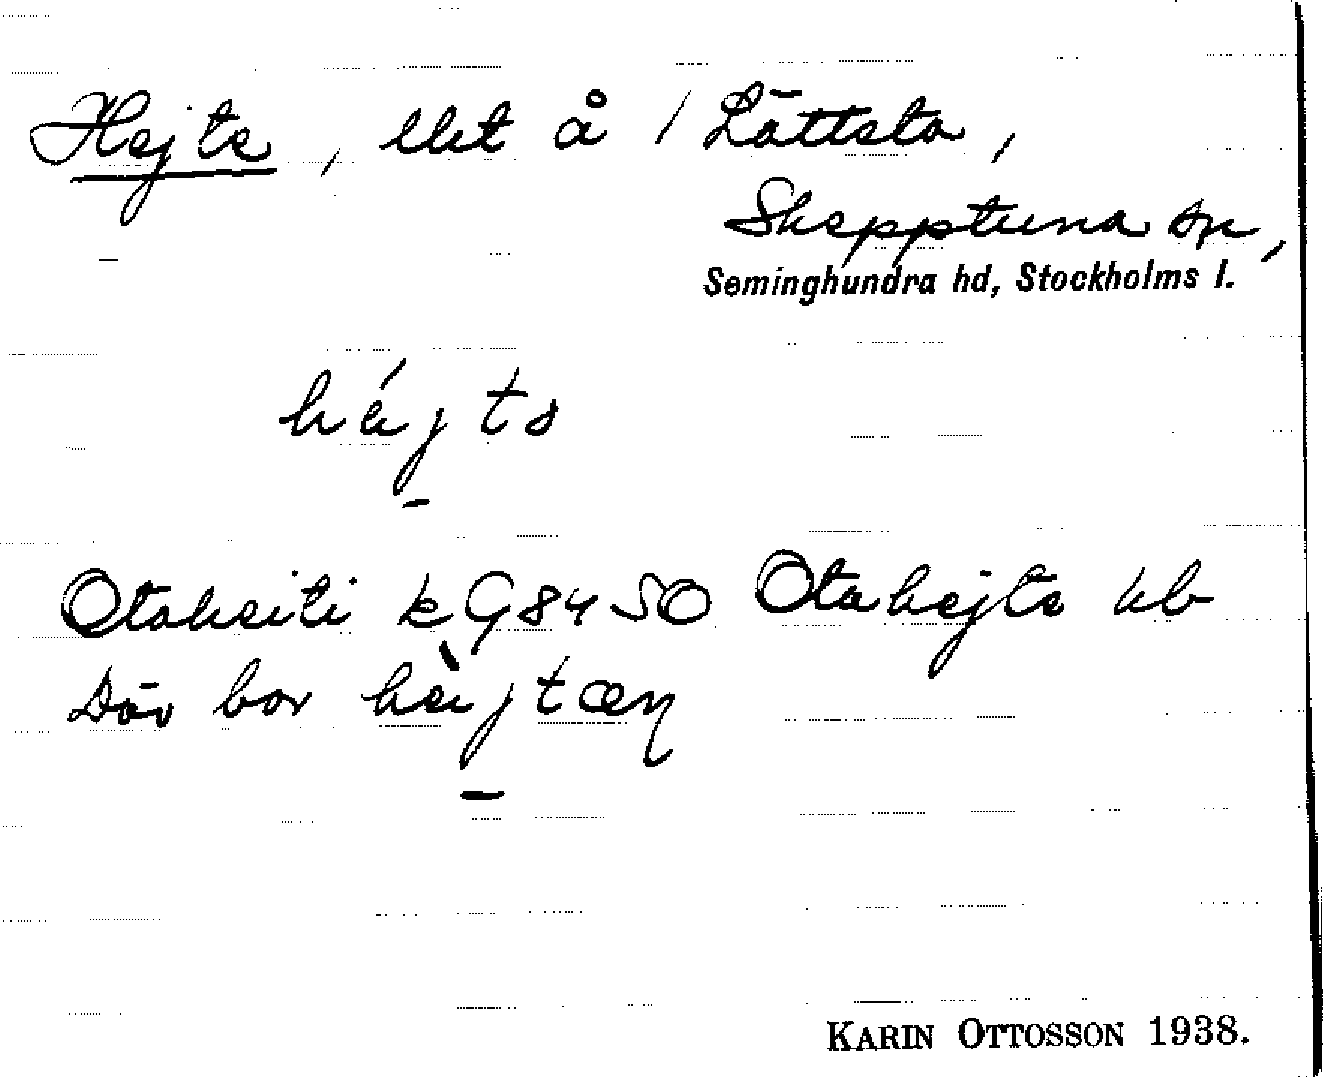 Hejte, llet å / Lättsta,
Skepptuna sn,
Seminghundra hd, Stockholms l.
héjtə
Otaheiti kG8450 Otahejte kb
Där bor hèjtæn
KARIN OTTOSSON 1938.